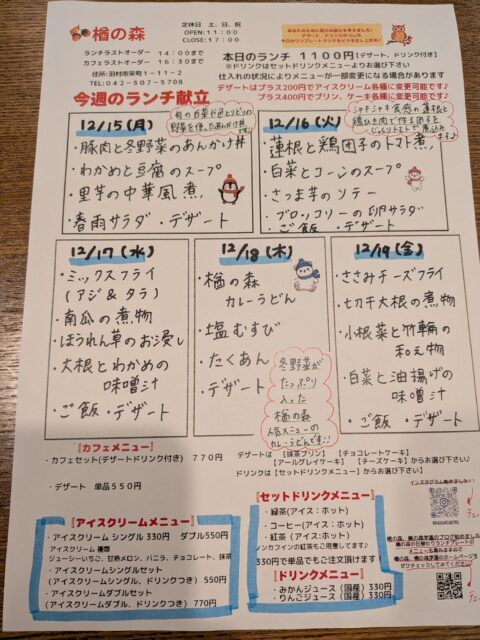 楢の森
定休日 土、日、祝
OPEN:11:00
CLOSE:17:00
ランチラストオーダー 14:00まで
カフェラストオーダー 16:30まで
住所:羽村市栄町1-11-2
TEL:042-507-5708
本日のランチ 1100円【デザート、ドリンク付き】
※ドリンクはセットドリンクメニューよりお選び下さい
仕入れの状況によりメニューが一部変更になる場合があります
デザートはプラス200円でアイスクリーム各種に変更可能です♪
プラス400円でプリン、ケーキ各種に変更可能です♪
今週のランチ献立
12/15(月)
旬の白菜が
野菜を使ったあんかけ丼です
・豚肉と冬野菜のあんかけ丼
・わかめと豆腐のスープ
・里芋の中華風煮
・春雨サラダ ・デザート
12/16(火)
シャキシャキ食感の蓮根と
鶏ひき肉で作る団子を
じっくりトマトで煮込みます♪
・蓮根と鶏団子のトマト煮
・白菜とコーンのスープ
・さつま芋のソテー
・ブロッコリーの卵サラダ
・ご飯 ・デザート
12/17(水)
・ミックスフライ
(アジ&タラ)
・南瓜の煮物
・ほうれん草のお浸し
・大根とわかめの
味噌汁
・ご飯 ・デザート
12/18(木)
・楢の森
カレーうどん
・塩むすび
・たくあん
・デザート
冬野菜が
たっぷり
入った
楢の森
人気メニューの
カレーうどんです!!
12/19(金)
・ささみチーズフライ
・切干大根の煮物
・小根菜と竹輪の
和え物
・白菜と油揚げの
味噌汁
・ご飯 ・デザート
『カフェメニュー』
・カフェセット(デザートドリンク付き) 770円
・デザート 単品550円
デザートは 【抹茶プリン】 【チョコレートケーキ】
【アールグレイケーキ】 【チーズケーキ】からお選び下さい♪
ドリンクは【セットドリンクメニュー】からお選び下さい♪
『アイスクリームメニュー』
・アイスクリーム シングル 330円 ダブル550円
アイスクリーム 種類
ジューシーいちご、甘熟メロン、バニラ、チョコレート、抹茶
・アイスクリームシングルセット
(アイスクリームシングル、ドリンクつき) 550円
・アイスクリームダブルセット
(アイスクリームダブル、ドリンクつき) 770円
『セットドリンクメニュー』
・緑茶(アイス:ホット)
・コーヒー(アイス:ホット)
・紅茶(アイス:ホット)
ノンカフェインの紅茶もご用意してます♪
330円で単品でもご注文頂けます
『ドリンクメニュー』
・みかんジュース(国産)330円
・りんごジュース(国産)330円
インスタグラム始めました!